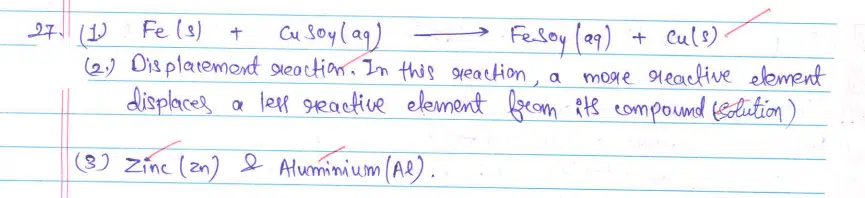 27. (1) Fe (s) + CuSO4 (aq) ⟶ FeSO4 (aq) + Cu(s)
(2.) Displacement reaction. In this reaction, a more reactive element
displaces a less reactive element from its compound (solution)
(3) Zinc (Zn) & Aluminium (Al).